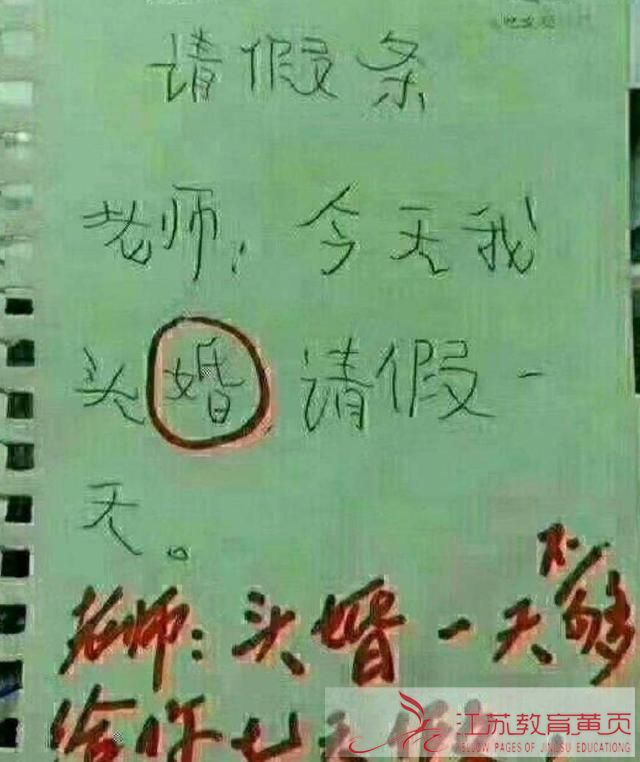 请假条
老师：今天我
头婚，请假一
天。
老师：头婚一天不够
给你七天假
江苏教育黄页
YELLOW PAGES OF JINGSU EDUCATIONG